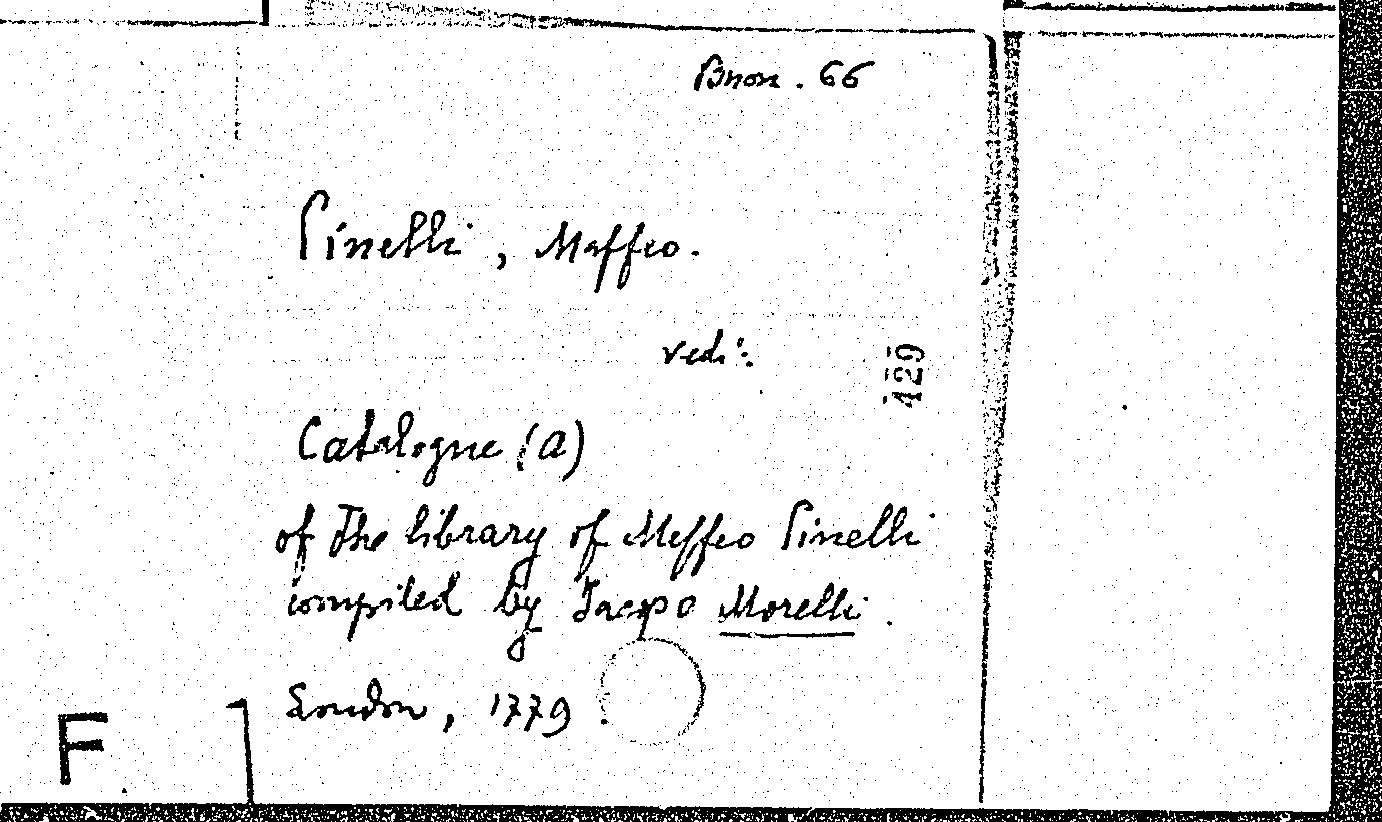 Buon. 66
Pinelli, Maffeo.
vedi:
429
Catalogue (a)
of the library of Maffeo Pinelli
compiled by Jacopo Morelli.
London, 1779.
F